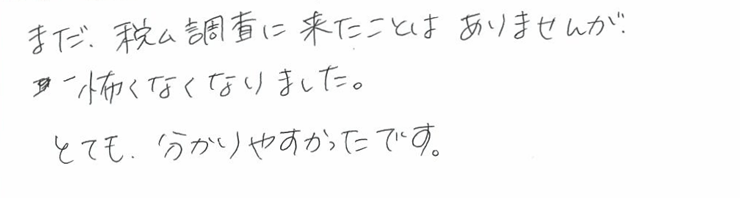 まだ、税ム調査に来たことはありませんが、
怖くなくなりました。
とても、分かりやすかったです。